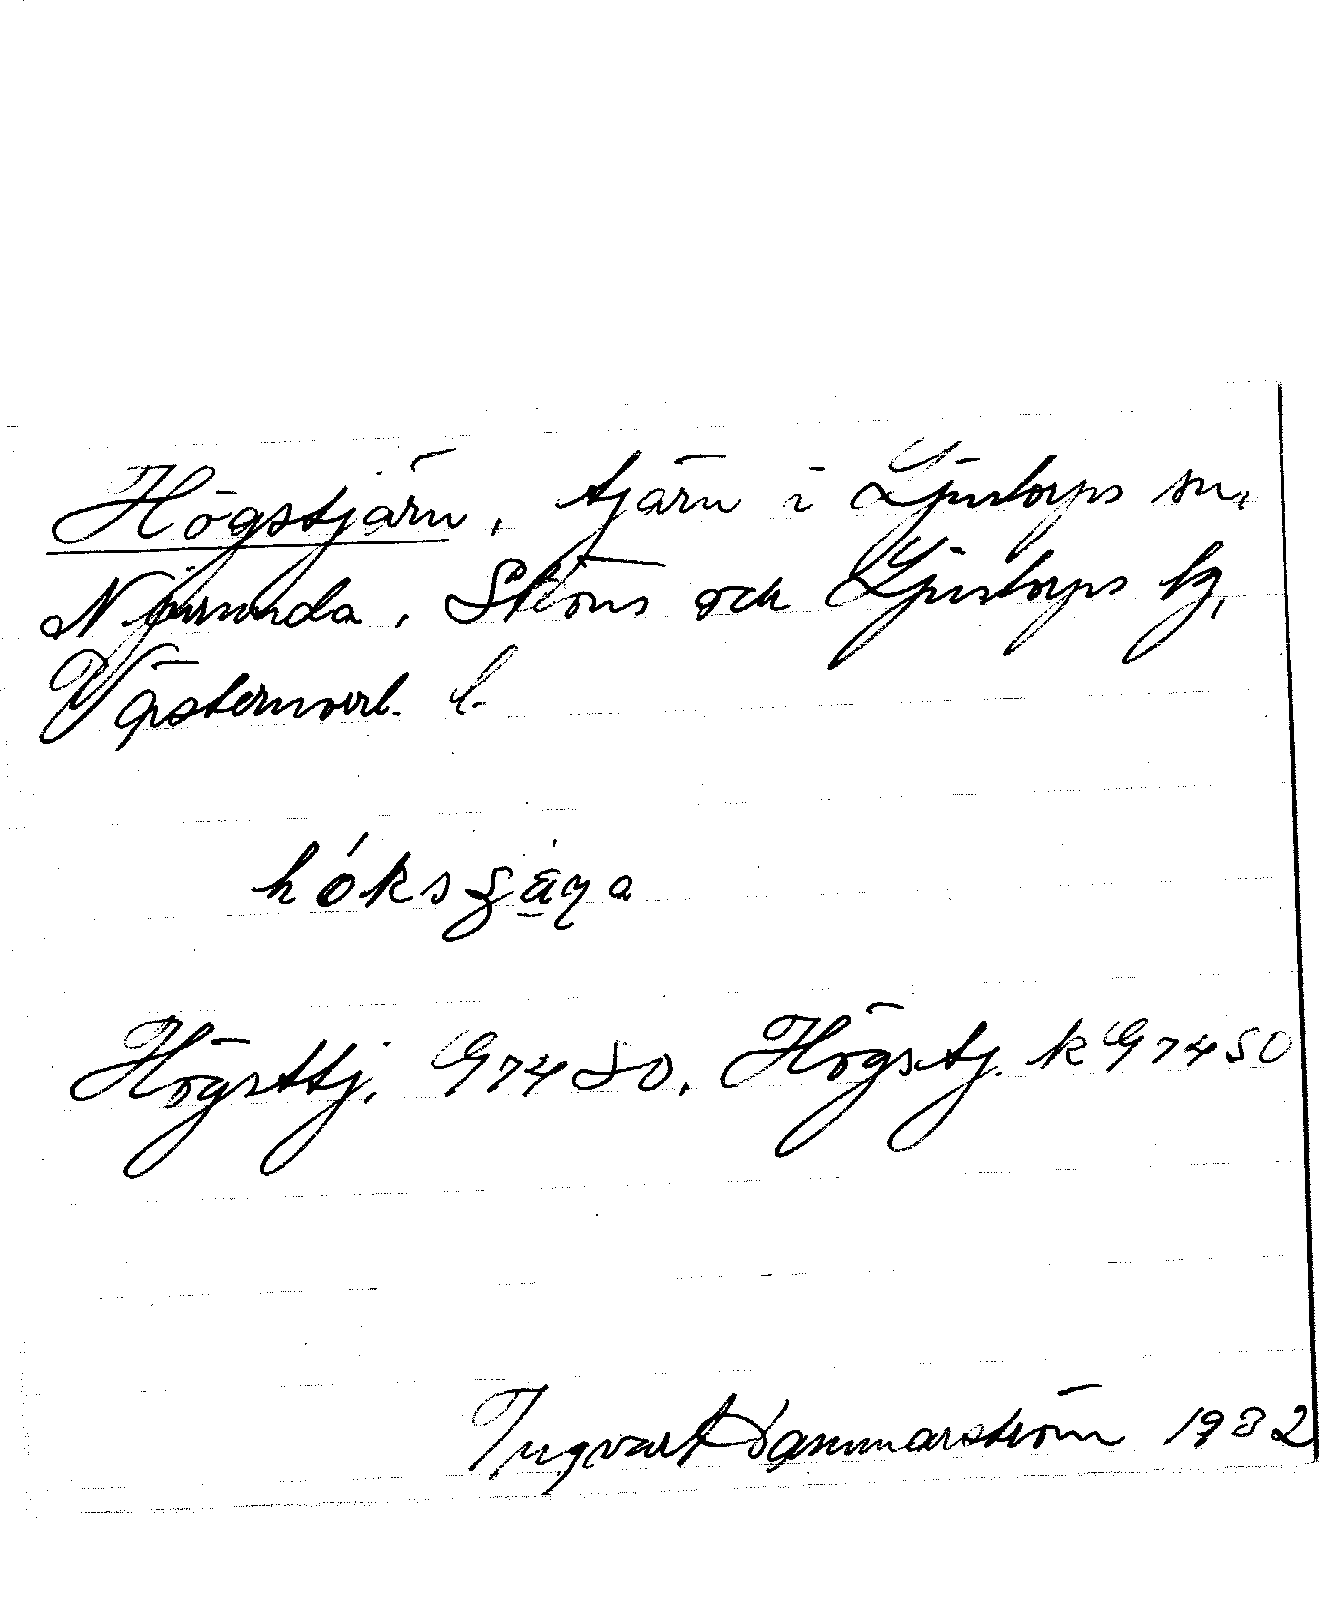 Högstjärn, tjärn i Ljustorps sn,
Njurunda, Sköns och Ljustorps tg,
Västernorrl. l.
Högsttj. G 74 SO. Högstj. k G 74 SO
Ingvar Hammarström 1932